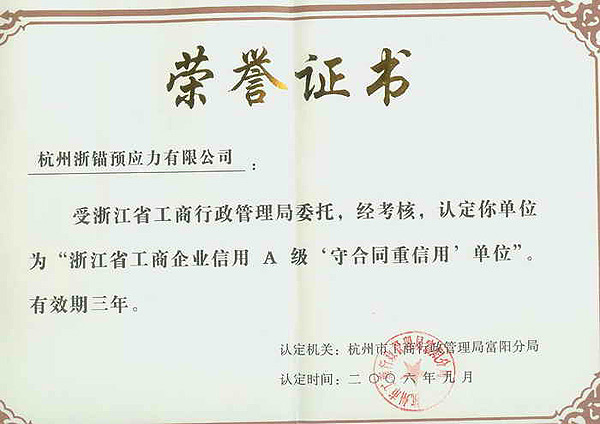 荣誉证书
杭州浙锚预应力有限公司：
受浙江省工商行政管理局委托，经考核，认定你单位
为“浙江省工商企业信用 A 级‘守合同重信用’单位”。
有效期三年。
认定机关：杭州市工商行政管理局富阳分局
认定时间：二〇〇六年九月